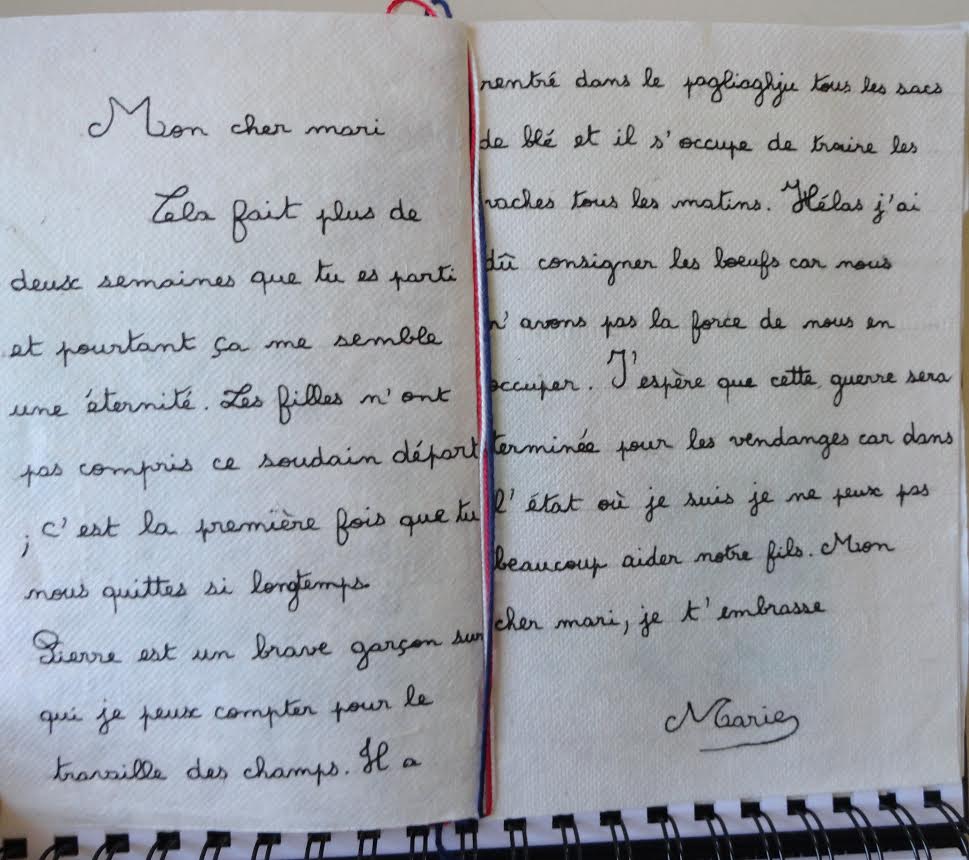 Mon cher mari
Cela fait plus de
deux semaines que tu es parti
et pourtant ça me semble
une éternité. Les filles n'ont
pas compris ce soudain départ
; c'est la première fois que tu
nous quittes si longtemps.
Pierre est un brave garçon sur
qui je peux compter pour le
travaille des champs. Il a
rentré dans le pagliaghju tous les sacs
de blé et il s'occupe de traire les
vaches tous les matins. Hélas j'ai
dû consigner les boeufs car nous
n'avons pas la force de nous en
occuper. J'espère que cette guerre sera
terminée pour les vendanges car dans
l'état où je suis je ne peux pas
beaucoup aider notre fils. Mon
cher mari, je t'embrasse
Marie